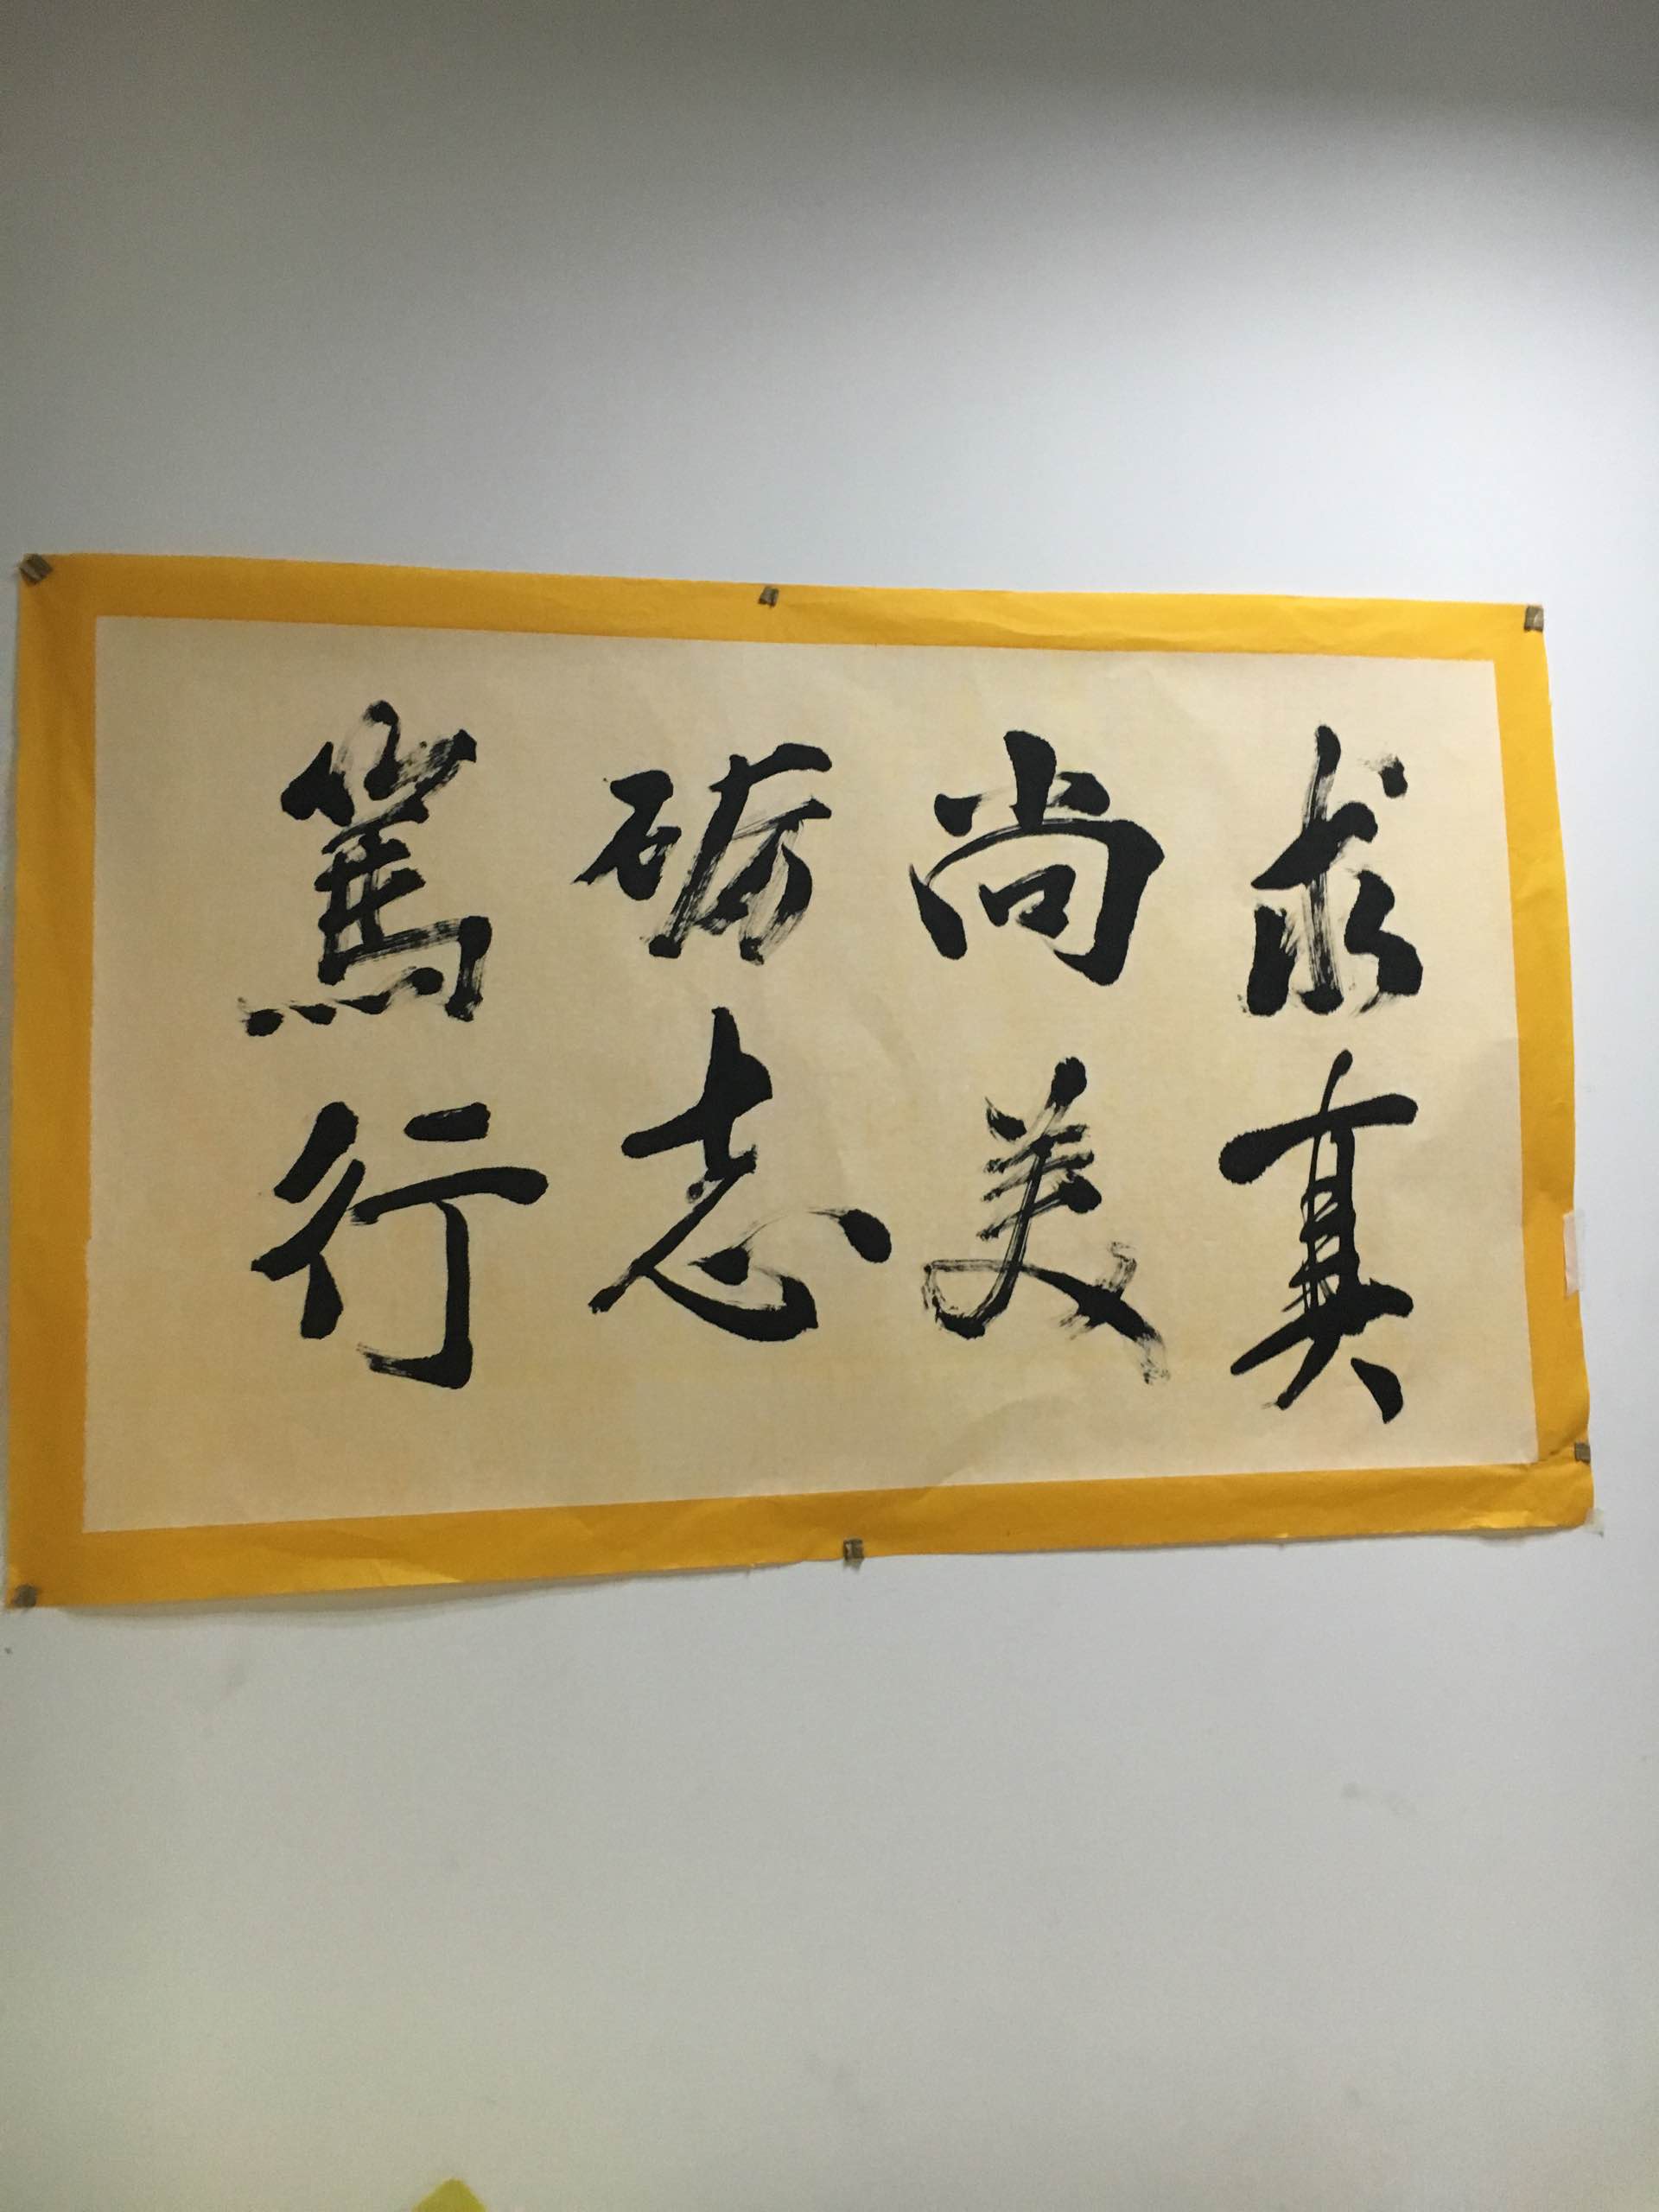 求真
尚美
砺志
篤行